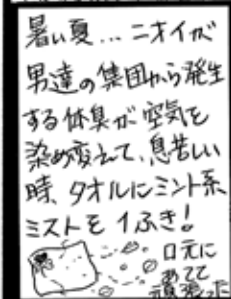 暑い夏…ニオイが
男達の集団から発生
する体臭が空気を
染め変えて、息苦しい
時、タオルにミント系
ミストを1ふき!
口元に
あてて
頑張った